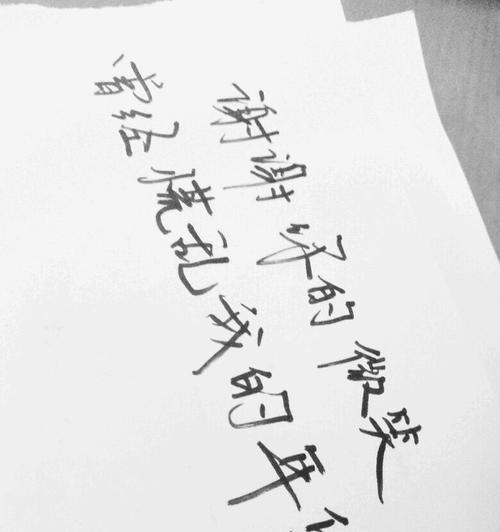 谢谢你的微笑
曾经慌乱我的年